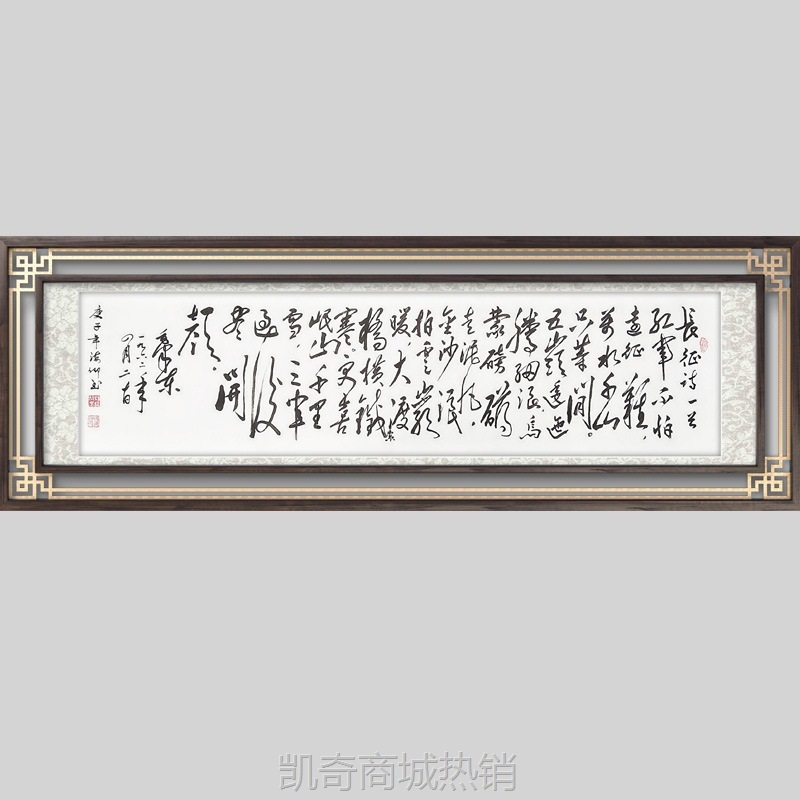 長征詩一首
紅軍不怕
遠征難，
萬水千山
只等閒。
五嶺逶迤
騰細浪，烏
蒙磅礴
走泥丸。
金沙浪
拍雲崖
暖，大渡
橋橫鐵索
寒。更喜
岷山千里
雪，三軍
過後
盡開
顏。
毛澤東
一九六二年
四月二十日
庚子年
凯奇商城热销